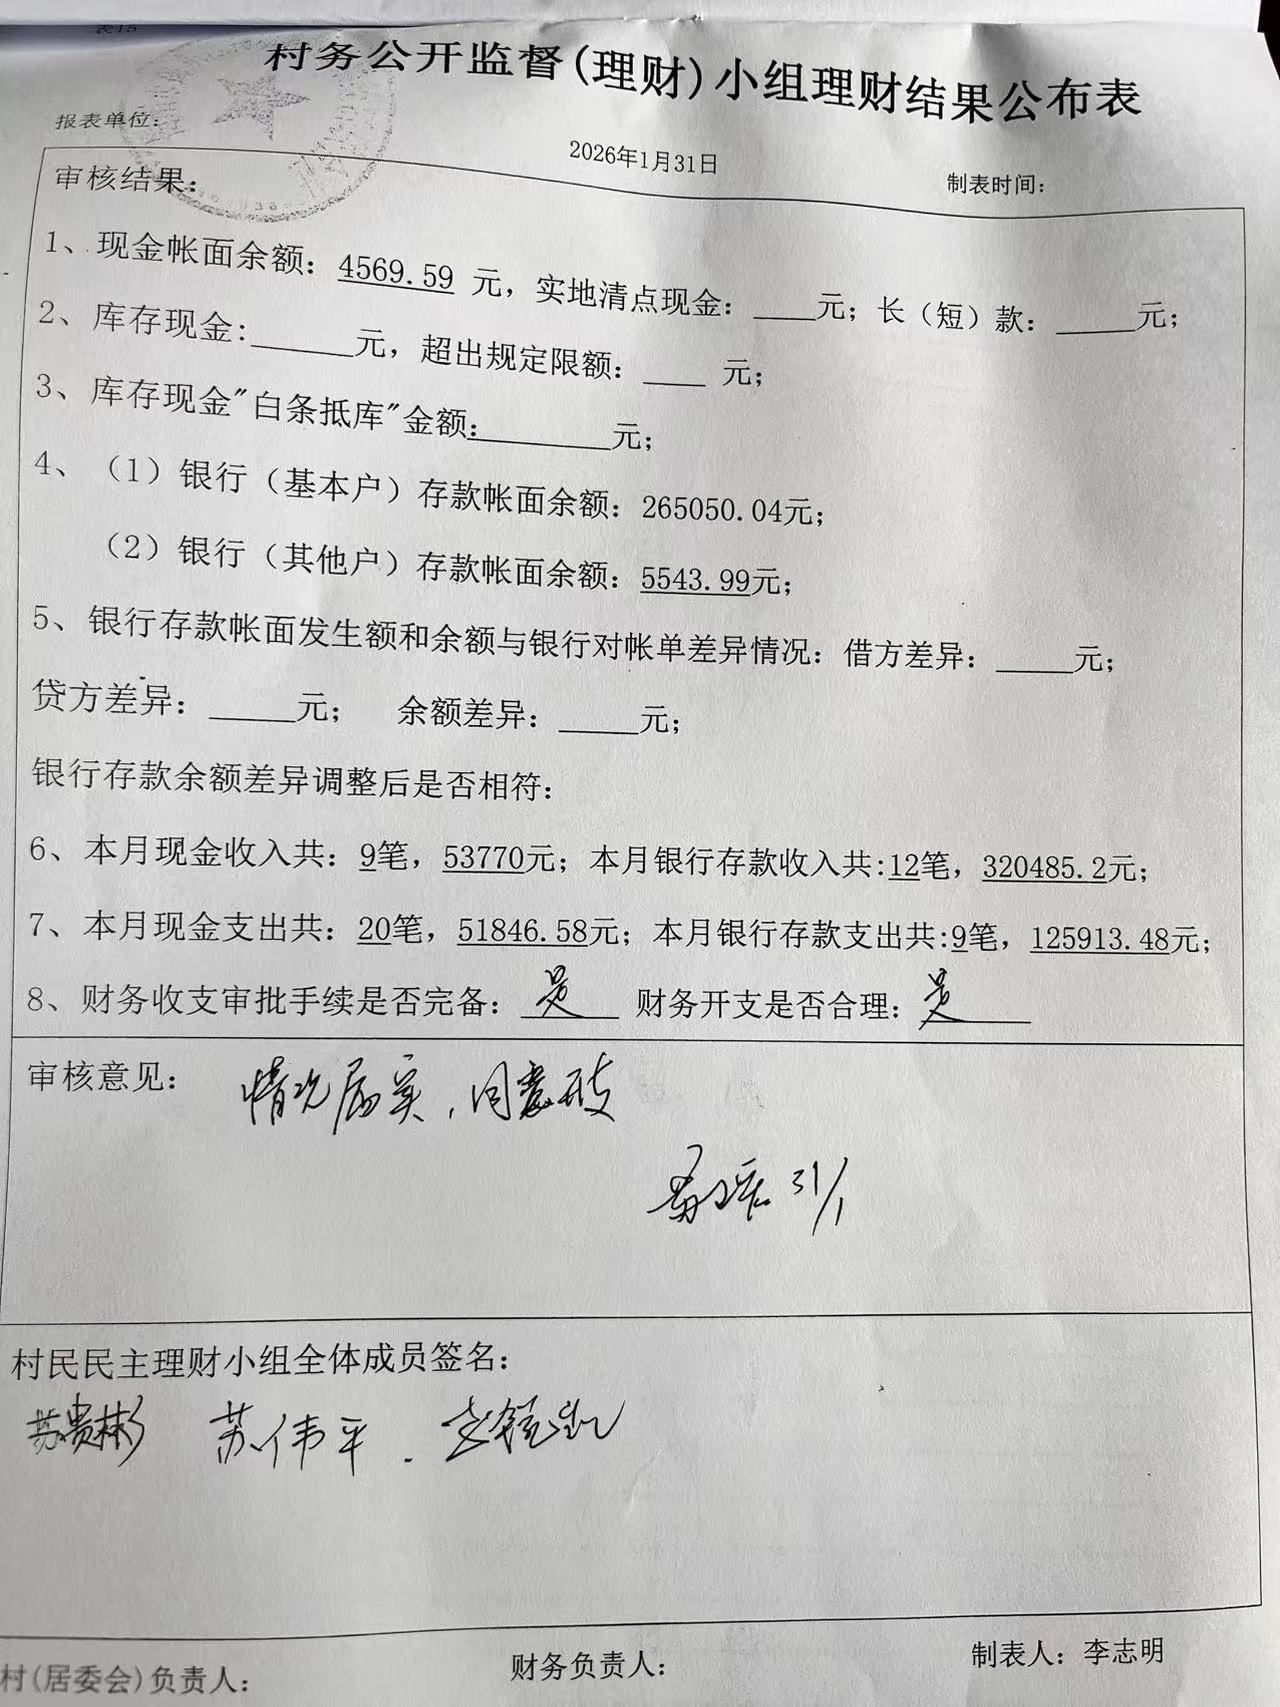 表15
村务公开监督(理财)小组理财结果公布表
报表单位:
2026年1月31日
制表时间:
审核结果:
1、现金帐面余额: 4569.59 元, 实地清点现金: ____元; 长(短)款: _____元;
2、库存现金:______元, 超出规定限额: ____ 元;
3、库存现金"白条抵库"金额:________元;
4、(1)银行(基本户)存款帐面余额: 265050.04元;
(2)银行(其他户)存款帐面余额: 5543.99元;
5、银行存款帐面发生额和余额与银行对帐单差异情况: 借方差异: _____元;
贷方差异: _____元; 余额差异: _____元;
银行存款余额差异调整后是否相符:
6、本月现金收入共: 9笔, 53770元; 本月银行存款收入共:12笔, 320485.2元;
7、本月现金支出共: 20笔, 51846.58元; 本月银行存款支出共:9笔, 125913.48元;
8、财务收支审批手续是否完备: 是 财务开支是否合理: 是
审核意见: 情况属实,同意开支
31/1
村民民主理财小组全体成员签名:
苏贵彬 苏伟平.
村(居委会)负责人: 财务负责人: 制表人: 李志明